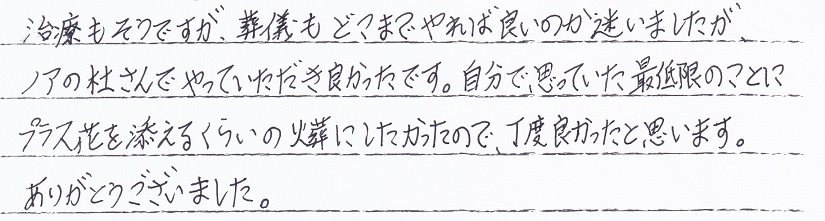 治療もそうですが、葬儀もどこまでやれば良いのか迷いましたが、
ノアの杜さんでやっていただき良かったです。自分で思っていた最低限のことに
プラス花を添えるくらいの火葬にしたかったので、丁度良かったと思います。
ありがとうございました。